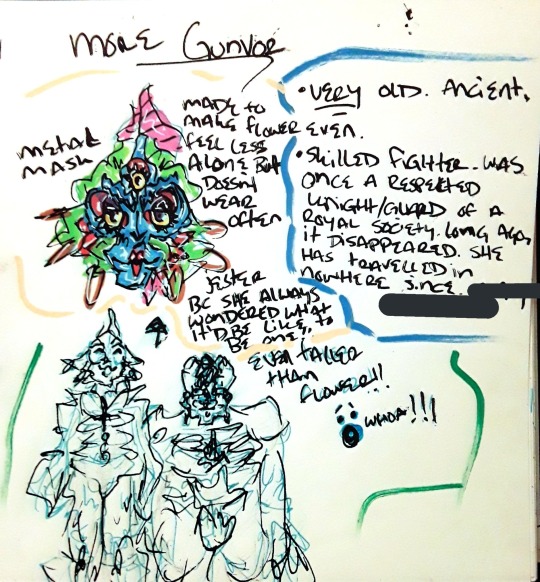 MORE Gunvor
METAL
MASK
MADE TO
MAKE FLOWER
FEEL LESS
ALONE BUT
DOESNT
WEAR
OFTEN
• VERY OLD. ANCIENT,
EVEN.
• SKILLED FIGHTER. WAS
ONCE A RESPECTED
KNIGHT/GUARD OF A
ROYAL SOCIETY. LONG AGO,
IT DISAPPEARED. SHE
HAS TRAVELLED IN
NOWHERE SINCE.
JESTER
BC SHE ALWAYS
WONDERED WHAT
IT'D BE LIKE, TO
BE ONE,
EVEN TALLER
THAN
FLOWER!!
WHOA!!!